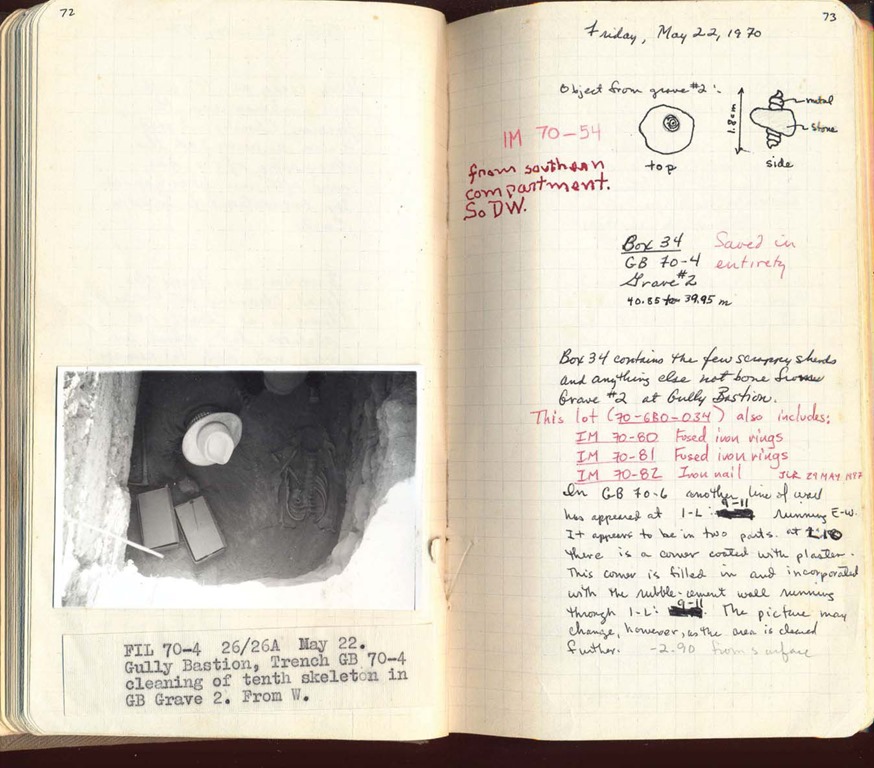 72
FIL 70-4 26/26A May 22.
Gully Bastion, Trench GB 70-4
cleaning of tenth skeleton in
GB Grave 2. From W.
73
Friday, May 22, 1970
Object from grave #2:
IM 70-54
from southern
compartment.
So DW.
1.8 cm
metal
stone
top
side
Box 34
GB 70-4
Grave #2
40.85 to 39.95 m
Saved in
entirety
Box 34 contains the few scrappy sherds
and anything else not bone from
Grave #2 at Gully Bastion.
This lot (70-GB0-034) also includes:
IM 70-80 Fused iron rings
IM 70-81 Fused iron rings
IM 70-82 Iron nail
29 MAY 1987
In GB 70-6 another line of wall
has appeared at 1-L: 9-11 running E-W.
It appears to be in two parts. at
there is a corner coated with plaster.
This corner is filled in and incorporated
with the rubble-cement wall running
through 1-L: 9-11. The picture may
change, however, as the area is cleared
further. -2.90 from surface